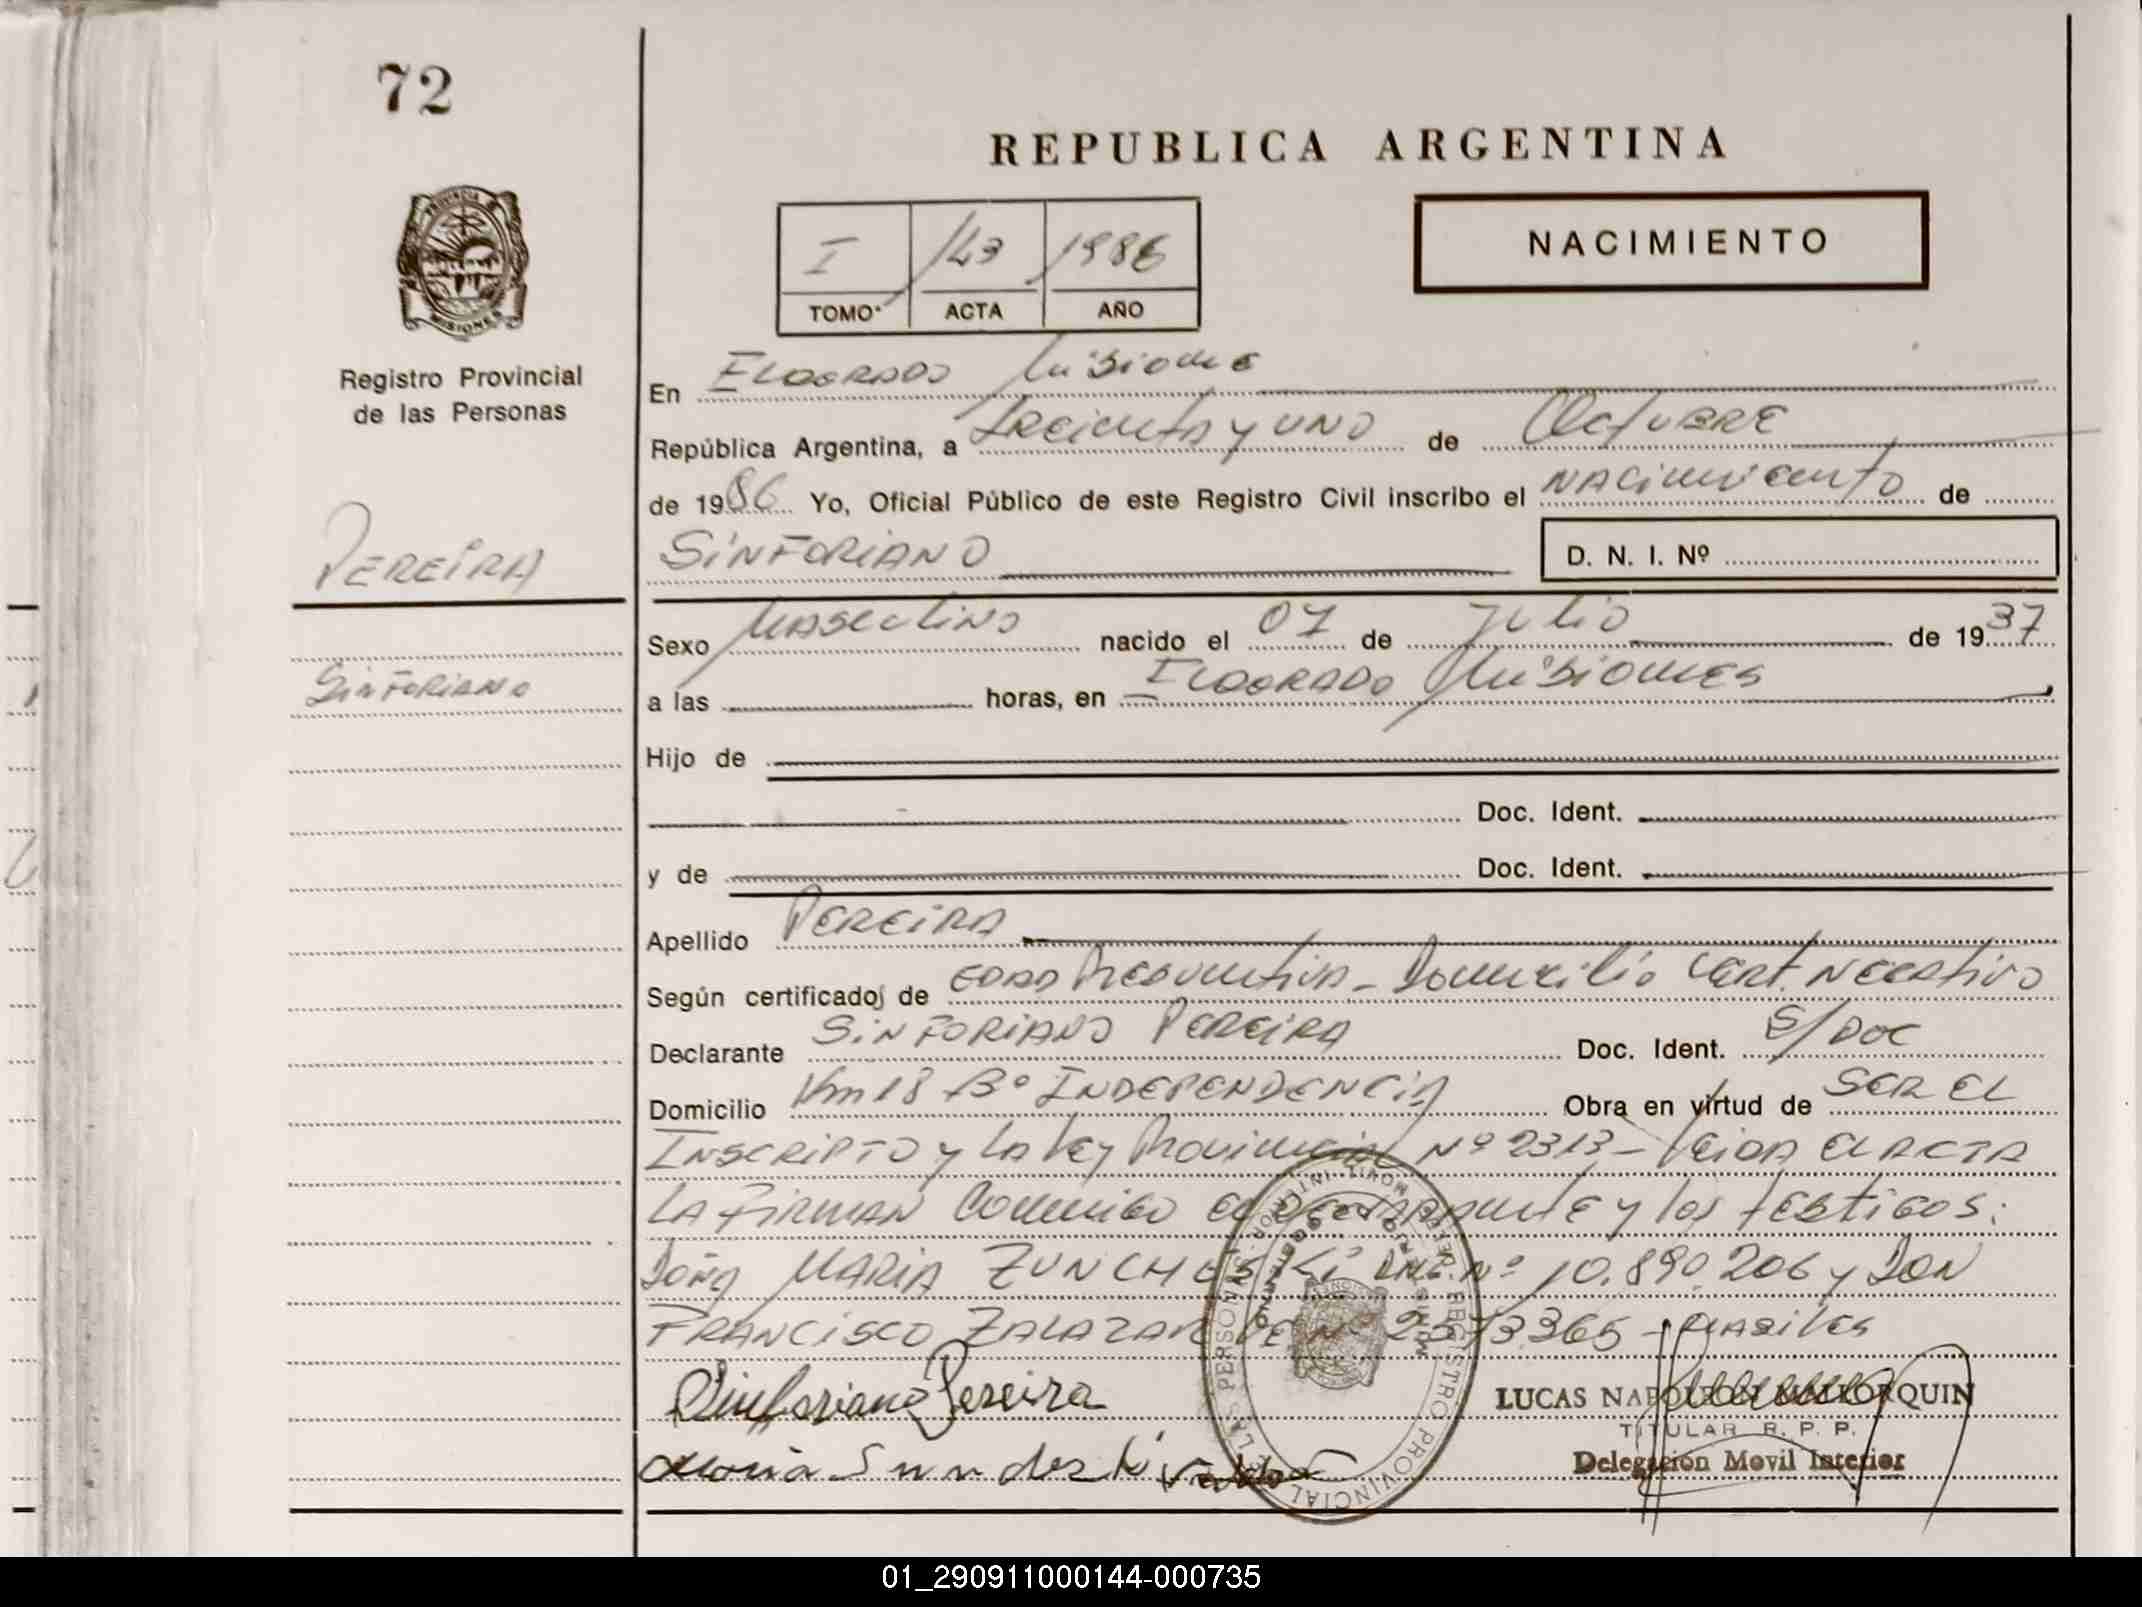 72
REPUBLICA ARGENTINA
PROVINCIA DE
MISIONES
I 143 1986
TOMO ACTA AÑO
NACIMIENTO
Registro Provincial
de las Personas
En ELDORADO Misiones
República Argentina, a treinta y UNO de Octubre
de 1986 Yo, Oficial Público de este Registro Civil inscribo el NACimiento de
PEREIRA
SINFORIANO
D. N. I. Nº
Sexo MASCULINO nacido el 07 de JULIO de 1937
SINFORIANO
a las horas, en ELDORADO Misiones
Hijo de
Doc. Ident.
y de Doc. Ident.
Apellido PEREIRA
Según certificados de EDAD Presuntiva - Domicilio Cert. Negativo
Declarante SINFORIANO PEREIRA Doc. Ident. S/DOC
Domicilio Km 18 Bº INDEPENDENCIA Obra en virtud de SER EL
INSCRIPTO y LA Ley Provincial Nº 2313 - Leida el ACTA
LA FIRMAN Conmigo el Declarante y los testigos:
Doña MARIA DNI. Nº 10.890.206 y DON
FRANCISCO ZALAZAR
Sinforiano Pereira
LUCAS NAPOLEON MALLORQUIN
TITULAR R. P. P.
Delegación Movil Interior
REGISTRO PROVINCIAL DE LAS PERSONAS
01_290911000144-000735